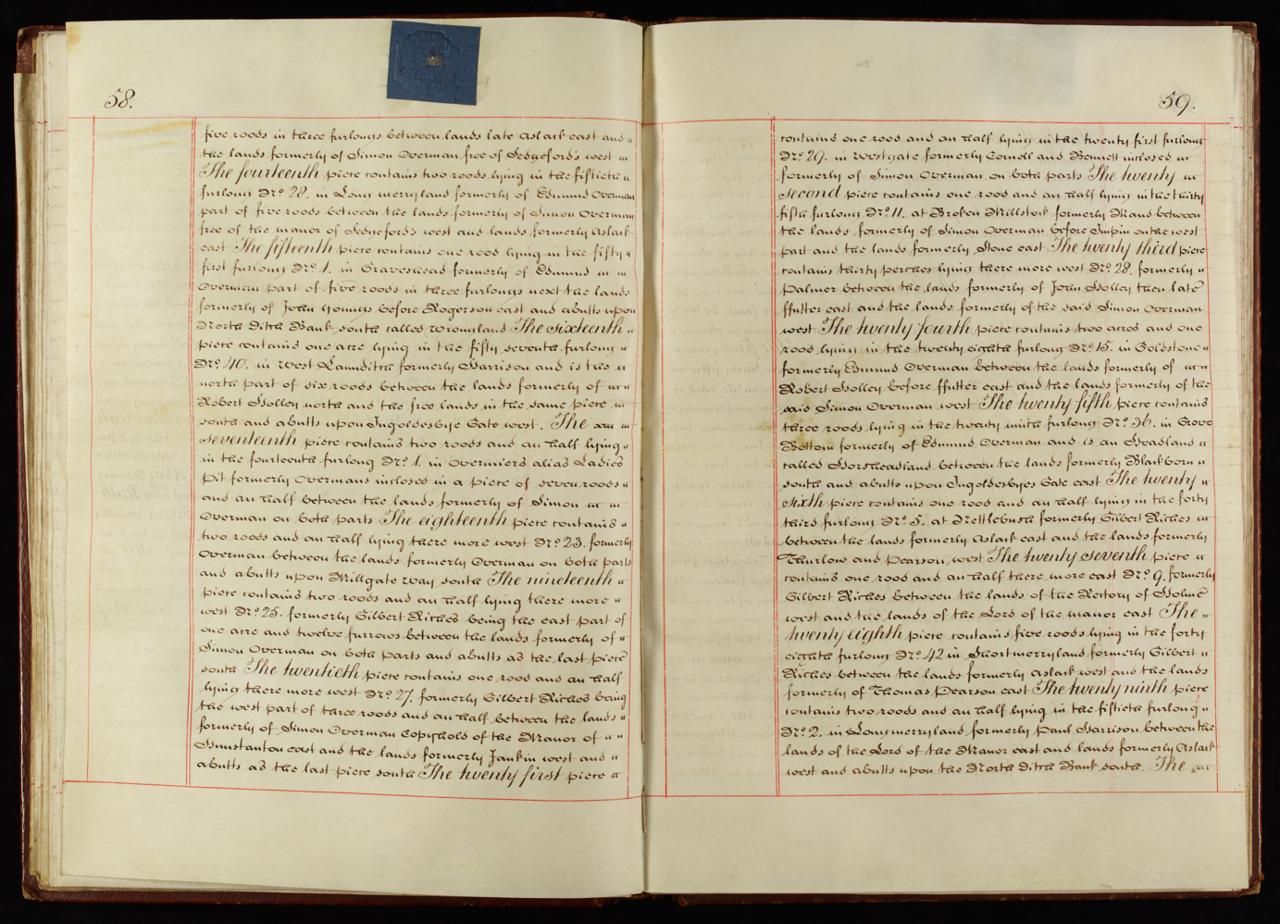 58.
five roods in three furlongs between lands late Aslack east and
the lands formerly of Simon Overman free of Sedgeford's west
The fourteenth piece contains two roods lying in the fiftieth
furlong No. 28. in Long merryland formerly of Edmund Overman
part of five roods between the lands formerly of Simon Overman
free of the manor of Sedgeford's west and lands formerly Aslack
east The fifteenth piece contains one rood lying in the fifty
first furlong No. 1. in Graveshead formerly of Edmund
Overman part of five roods in three furlongs next the lands
formerly of John Youngs before Rogerson east and abutts upon
North Ditch Bank south called Wrongland The sixteenth
piece contains one acre lying in the fifty seventh furlong
No. 40. in West Lamditch formerly Harrison and is the
north part of six roods between the lands formerly of
Robert Holley north and the free lands in the same piece
south and abutts upon Ingoldesbye Gate west. The
seventeenth piece contains two roods and an half lying
in the fourteenth furlong No. 1. in Overmiers alias Ladies
Pit formerly Overmans inclosed in a piece of seven roods
and an half between the lands formerly of Simon
Overman on both parts The eighteenth piece contains
two roods and an half lying there more west No. 23. formerly
Overman between the lands formerly Overman on both parts
and abutts upon Millgate way south The nineteenth
piece contains two roods and an half lying there more
west No. 25. formerly Gilbert Riches being the east part of
one acre and twelve furrows between the lands formerly of
Simon Overman on both parts and abutts as the last piece
south The twentieth piece contains one rood and an half
lying there more west No. 27. formerly Gilbert Riches being
the west part of three roods and an half between the lands
formerly of Simon Overman Copyhold of the Manor of
Hunstanton east and the lands formerly Jankin west and
abutts as the last piece south The twenty first piece
59.
contains one rood and an half lying in the twenty first furlong
No. 29. in Westgate formerly Cornell and Bennett inclosed
formerly of Simon Overman on both parts The twenty
second piece contains one rood and an half lying in the thirty
fifth furlong No. 11. at Broken Millstok formerly Mand between
the lands formerly of Simon Overman before Inpin on the west
part and the lands formerly Stone east The twenty third piece
contains thirty perches lying there more west No. 28. formerly
Palmer between the lands formerly of John Holley then late
ffutter east and the lands formerly of the said Simon Overman
west The twenty fourth piece contains two acres and one
rood lying in the twenty eighth furlong No. 15. in Goldstone
formerly Edmund Overman between the lands formerly of
Robert Holley before ffutter east and the lands formerly of the
said Simon Overman west The twenty fifth piece contains
three roods lying in the twenty ninth furlong No. 36. in Gove
Bottom formerly of Edmund Overman and is an Headland
called Horsheadland between the lands formerly Blackborn
south and abutts upon Ingoldesbyes Gate east The twenty
sixth piece contains one rood and an half lying in the forty
third furlong No. 5. at Nettlebush formerly Gilbert Riches
between the lands formerly Aslack east and the lands formerly
Thurlow and Pearson west The twenty seventh piece
contains one rood and an half there more east No. 9. formerly
Gilbert Riches between the lands of the Rectory of Holme
west and the lands of the Lord of the manor east The
twenty eighth piece contains five roods lying in the forty
eighth furlong No. 42 in Shortmerryland formerly Gilbert
Riches between the lands formerly Aslack west and the lands
formerly of Thomas Pearson east The twenty ninth piece
contains two roods and an half lying in the fiftieth furlong
No. 2. in Longmerryland formerly Paul Harrison between the
lands of the Lord of the Manor east and lands formerly Aslack
west and abutts upon the North Ditch Bank south. The